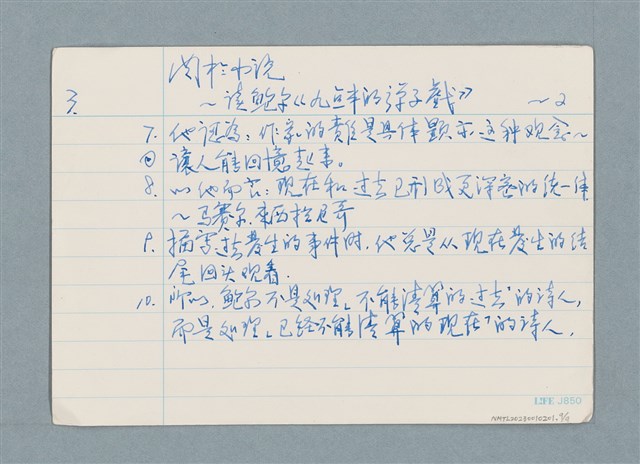 関於小说
～读鲍尔《九点半的弹子戲》 ～2
3.
7. 他認為：作家的責任是具体顯示这种观念～
回 讓人能回憶起事。
8. 以他而言：现在和过去已形成更深密的统一体
～马赛尔.莱西拉尼奇
9. 描写过去發生的事件时，他总是从现在發生的结
尾回头观看.
10. 所以，鲍尔不是处理「不能清算的过去」的诗人，
而是处理「已经不能清算的现在」的诗人.
LIFE J850
NMTL20280010201.